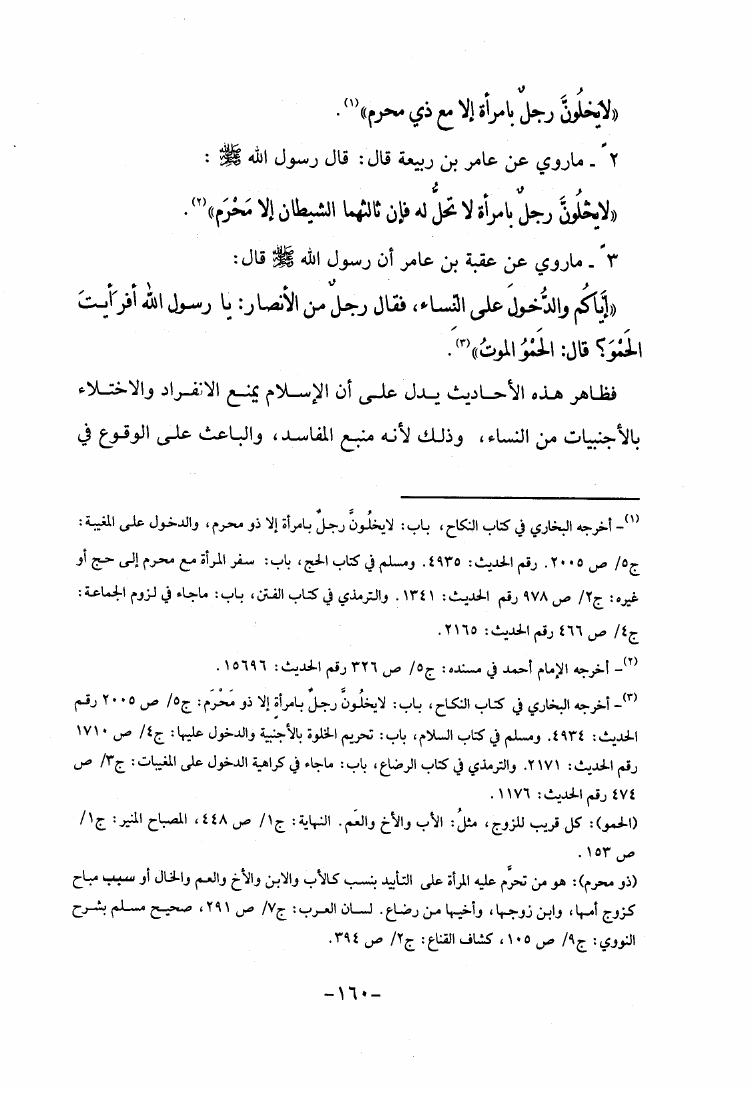 «لاَيَخلُونَّ رجلٌ بامرأة إلا مع ذي محرم»(١).
٢ً ـ ماروي عن عامر بن ربيعة قال: قال رسول الله ﷺ :
«لايَخْلُونَّ رجلٌ بامرأة لا تحلُّ له فإن ثالثهما الشيطان إلا مَحْرَم»(٢).
٣ً ـ ماروي عن عقبة بن عامر أن رسول الله ﷺ قال:
«إيَّاكُم والدُّخولَ على النِّساء، فقال رجلٌ من الأنصار: يا رسول الله أفرَأيتَ
الحَمْوَ؟ قال: الحَمْوُ الموتُ»(٣).
فظاهر هذه الأحاديث يدل على أن الإسلام يمنع الانفراد والاختلاء
بالأجنبيات من النساء، وذلك لأنه منبع المفاسد، والباعث على الوقوع في
(١)ـ أخرجه البخاري في كتاب النكاح، باب: لايخلُونَّ رجلٌ بامرأة إلا ذو محرم، والدخول على المغيبة:
ج٥/ ص ٢٠٠٥. رقم الحديث: ٤٩٣٥. ومسلم في كتاب الحج، باب: سفر المرأة مع محرم إلى حج أو
غيره: ج٢/ ص ٩٧٨ رقم الحديث: ١٣٤١. والترمذي في كتاب الفتن، باب: ماجاء في لزوم الجماعة:
ج٤/ ص ٤٦٦ رقم الحديث: ٢١٦٥.
(٢)ـ أخرجه الإمام أحمد في مسنده: ج٥/ ص ٣٢٦ رقم الحديث: ١٥٦٩٦.
(٣)ـ أخرجه البخاري في كتاب النكاح، باب: لايخلُونَّ رجلٌ بامرأةٍ إلا ذو مَحْرَم: ج٥/ ص ٢٠٠٥ رقم
الحديث: ٤٩٣٤. ومسلم في كتاب السلام، باب: تحريم الخلوة بالأجنبية والدخول عليها: ج٤/ ص ١٧١٠
رقم الحديث: ٢١٧١. والترمذي في كتاب الرضاع، باب: ماجاء في كراهية الدخول على المغيبات: ج٣/ ص
٤٧٤ رقم الحديث: ١١٧٦.
(الحمو): كل قريب للزوج، مثلُ: الأب والأخ والعَم. النهاية: ج١/ ص ٤٤٨، المصباح المنير: ج١/
ص ١٥٣.
(ذو محرم): هو من تحرُم عليه المرأة على التأبيد بنسب كالأب والابن والأخ والعم والخال أو سبب مباح
كزوج أمها، وابن زوجها، وأخيها من رضاع. لسان العرب: ج٧/ ص ٢٩١، صحيح مسلم بشرح
النووي: ج٩/ ص ١٠٥، كشاف القناع: ج٢/ ص ٣٩٤.
-١٦٠-